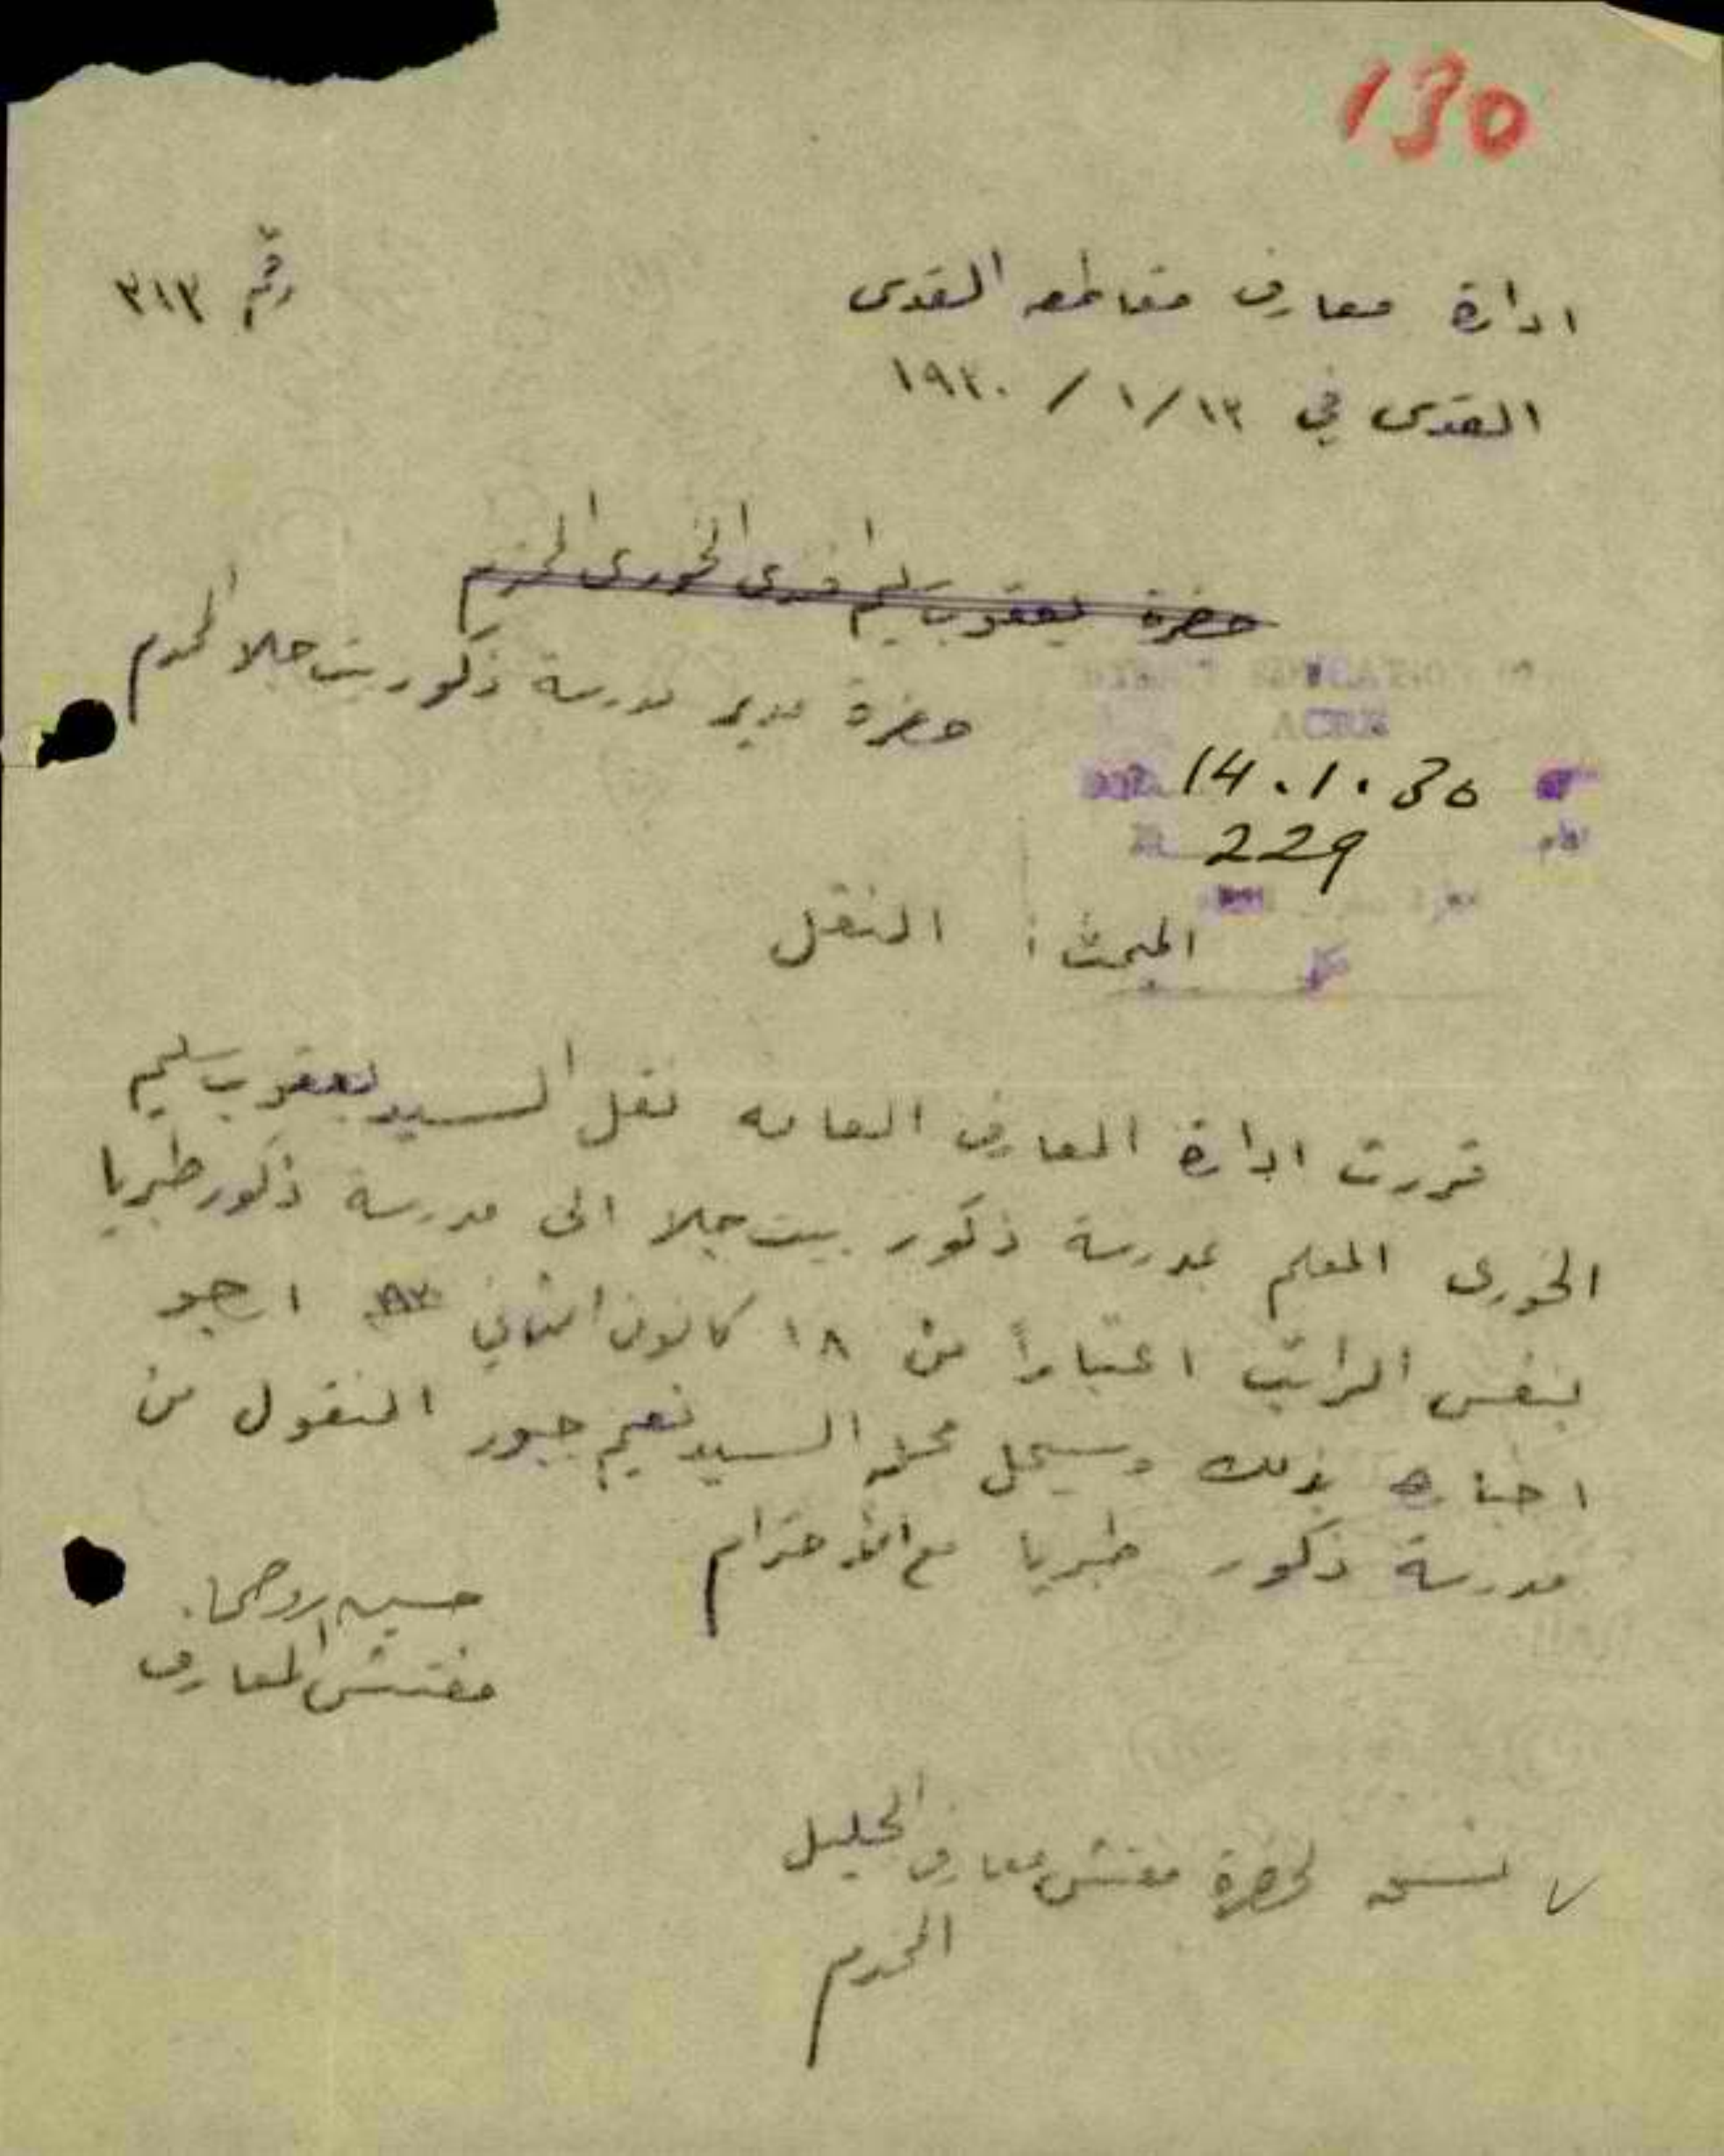 130
ادارة معارف مقاطعه القدس
رقم ٣١٣
القدس في ١٣ / ١ / ١٩٣٠
حضرة يعقوب سليم افندي الخوري المحترم
حضرة مدير مدرسة ذكور بيت جالا المحترم
ACRE
14.1.30
229
المبحث : النقل
قررت ادارة المعارف العامه نقل السيد يعقوب سليم
الخوري المعلم بمدرسة ذكور بيت جالا الى مدرسة ذكور طبريا
بنفس الراتب اعتباراً من ١٨ كانون الثاني ارجو
اخباره بذلك وسيحل محله السيد نعيم جبور المنقول من
مدرسة ذكور طبريا مع الاحترام
حسين روحي
مفتش المعارف
نسخه لحضرة مفتش معارف الجليل
المحترم